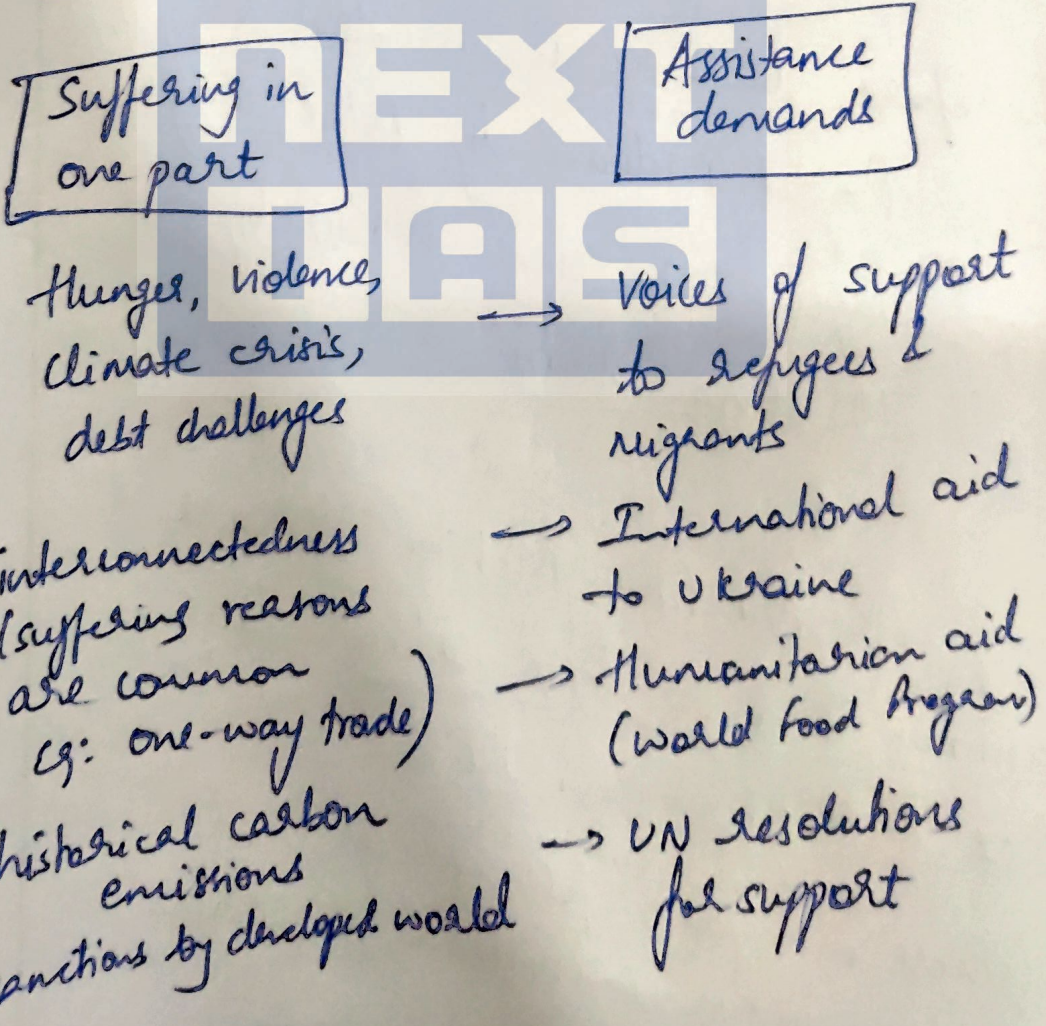 NEXT
IAS
Suffering in
one part
Assistance
demands
Hunger, violence,
climate crisis,
debt challenges
→ Voices of support
to refugees &
migrants
interconnectedness
(suffering reasons
are common
eg: one-way trade)
→ International aid
to Ukraine
→ Humanitarian aid
(World Food Program)
historical carbon
emissions
by developed world
→ UN resolutions
for support